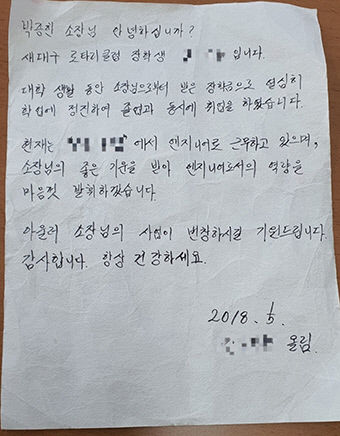 박종진 소장님 안녕하십니까?
새대구 로타리클럽 장학생 입니다.
대학 생활 동안 소장님으로부터 받은 장학금으로 열심히
학업에 정진하여 졸업과 동시에 취업을 하였습니다.
현재는 에서 엔지니어로 근무하고 있으며,
소장님의 좋은 기운을 받아 엔지니어로서의 역량을
마음껏 발휘하겠습니다.
아울러 소장님의 사업이 번창하시길 기원드립니다.
감사합니다. 항상 건강하세요.
2018. 1/5.
올림.